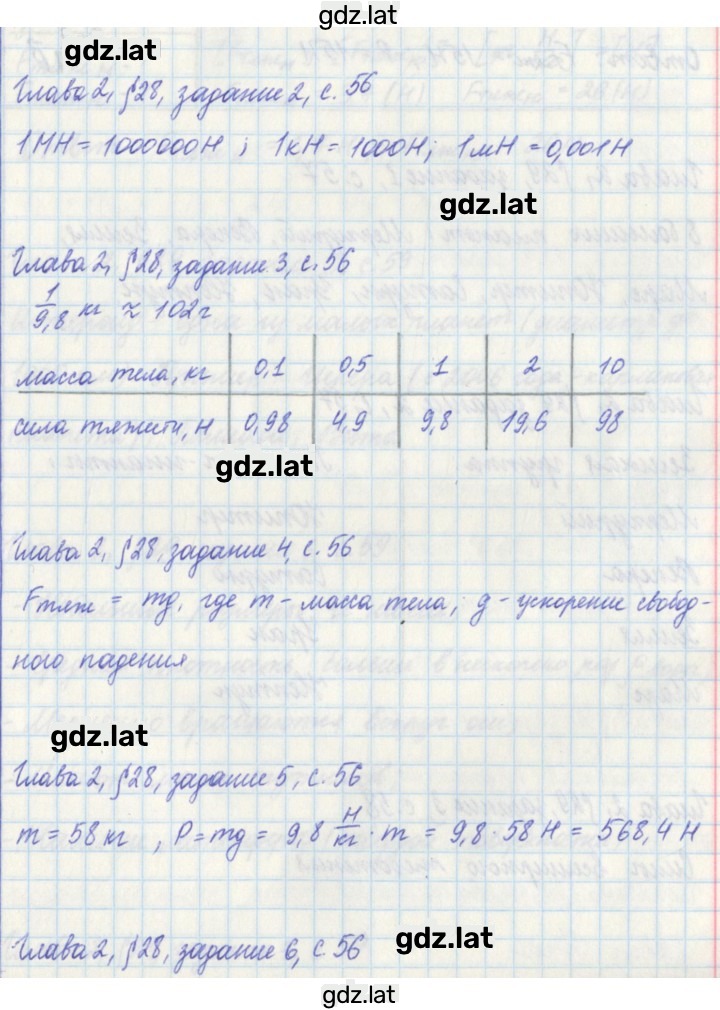 gdz.lat
gdz.lat
Глава 2, §28, задание 2, с. 56
1МН = 1000000Н ; 1кН = 1000Н; 1мН = 0,001Н
gdz.lat
Глава 2, §28, задание 3, с. 56
1/9,8 кг ≈ 102г
масса тела, кг 0,1 0,5 1 2 10
сила тяжести, Н 0,98 4,9 9,8 19,6 98
gdz.lat
Глава 2, §28, задание 4, с. 56
Fтяж = mg, где m - масса тела; g - ускорение свобод-
ного падения
gdz.lat
Глава 2, §28, задание 5, с. 56
m = 58 кг , P = mg = 9,8 Н/кг · m = 9,8 · 58 Н = 568,4 Н
gdz.lat
Глава 2, §28, задание 6, с. 56
gdz.lat